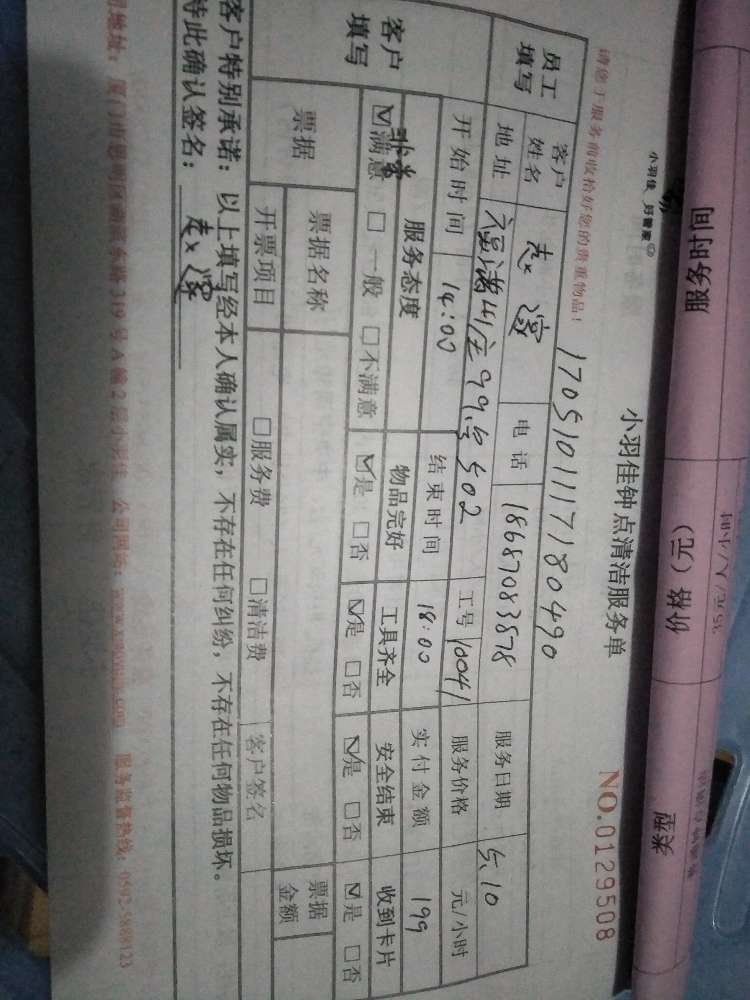 服务时间
价格（元）
类型
35元/人/小时
小羽佳 好管家
小羽佳钟点清洁服务单
NO.0129508
请您于服务前收拾好您的贵重物品！
1705101117180490
员工填写
客户姓名
电话 18687083578
服务日期 5.10
地址 99号502
工号 10041
服务价格 元/小时
开始时间 14:00
结束时间 18:00
实付金额 199
客户填写
服务态度 物品完好 工具齐全 安全结束 收到卡片
☑非常满意 □一般 □不满意 ☑是 □否 ☑是 □否 ☑是 □否 ☑是 □否
票据
票据名称
票据金额
开票项目 □服务费 □清洁费 客户签名
客户特别承诺：以上填写经本人确认属实，不存在任何纠纷，不存在任何物品损坏。
特此确认签名：
319号A幢2层小羽佳 公司网站： 服务监督热线：0592-5888123